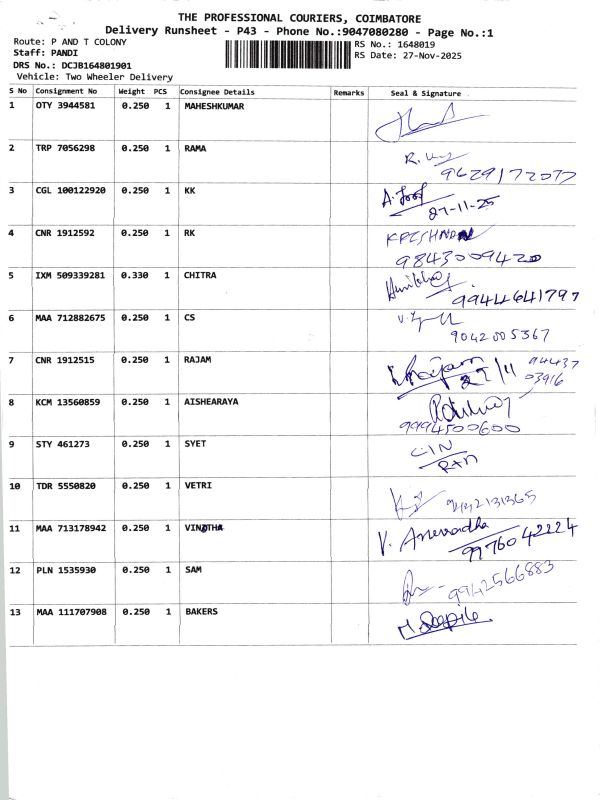 THE PROFESSIONAL COURIERS, COIMBATORE
Delivery Runsheet - P43 - Phone No.:9047080280 - Page No.:1
Route: P AND T COLONY
Staff: PANDI
DRS No.: DCJB164801901
Vehicle: Two Wheeler Delivery
RS No.: 1648019
RS Date: 27-Nov-2025
S No Consignment No Weight PCS Consignee Details Remarks Seal & Signature
1 OTY 3944581 0.250 1 MAHESHKUMAR
2 TRP 7056298 0.250 1 RAMA
9629172077
3 CGL 100122920 0.250 1 KK
27-11-25
4 CNR 1912592 0.250 1 RK
9843009420
5 IXM 509339281 0.330 1 CHITRA
9944641797
6 MAA 712882675 0.250 1 CS
9042005367
7 CNR 1912515 0.250 1 RAJAM
27/11 94437
03916
8 KCM 13560859 0.250 1 AISHEARAYA
9994500600
9 STY 461273 0.250 1 SYET
10 TDR 5550820 0.250 1 VETRI
11 MAA 713178942 0.250 1
V. Anuradha
9976042224
12 PLN 1535930 0.250 1 SAM
9942566883
13 MAA 111707908 0.250 1 BAKERS